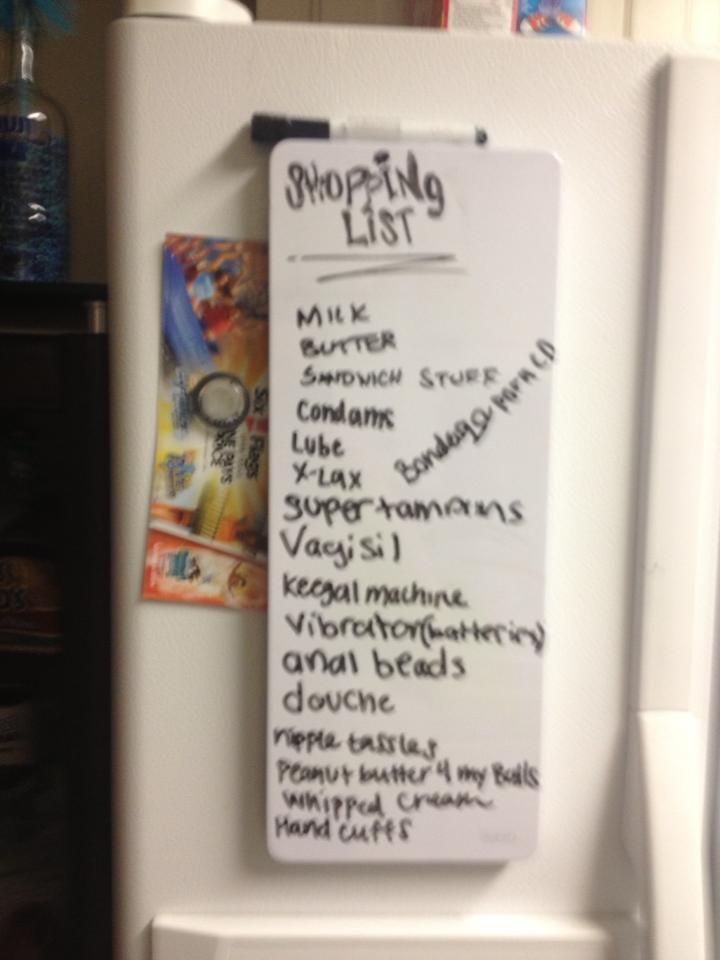 SHOPPiNg
LiST
MilK
BUTTER
SANDWICH STUFF
Condams
Lube
X-Lax
Bondage
super tampons
Vagisil
keegal machine
Vibrator(batteries)
anal beads
douche
nipple tassles
Peanut butter 4 my Balls
whipped cream
Hand cuffs
Six Flags